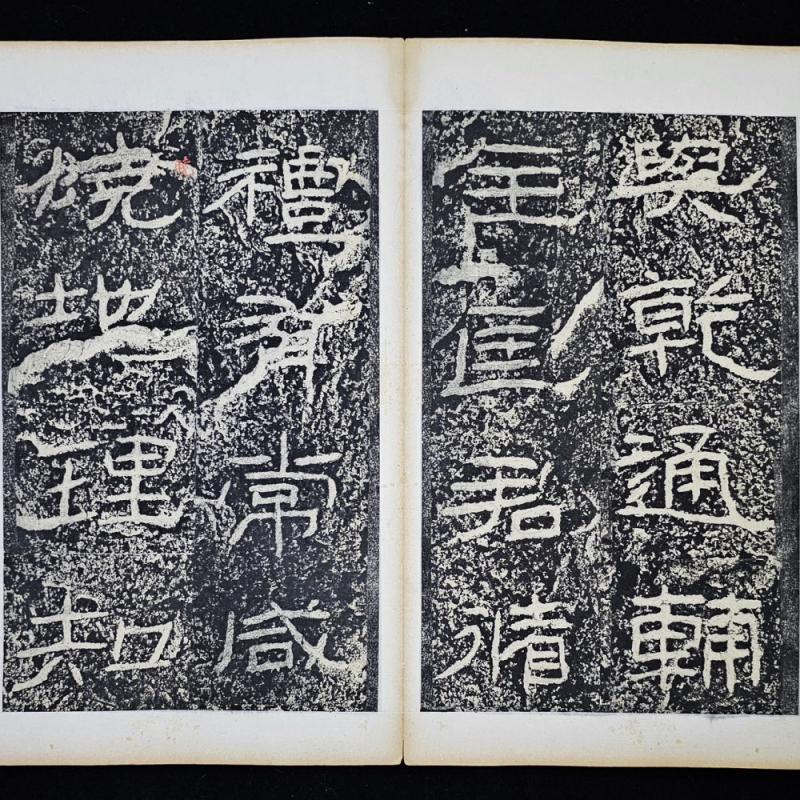 與乾通輔
主匡君循
禮有常咸
曉地理知